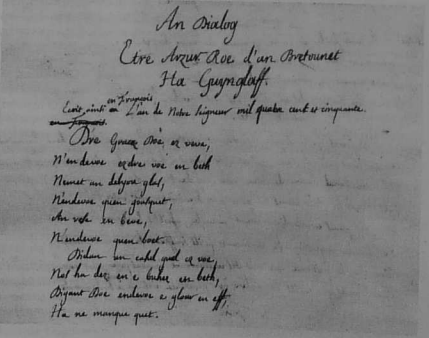 An Dialog
Etre Arzur Roe d'an Bretounet
Ha Guynglaff.
en françois
Ecrit ainsi en L'an de Notre Seigneur mil quatre cent et cinquante.
Dre Gracç Doe ez veve,
N'en devoe ezdre voe en beth
Nemet an delyou glas,
N'endevoe quen goasquet,
en beve,
N'endevoe quen boet.
Bidan un cafel guel ez voe,
Nos ha dez en e buhez en beth,
Digant Doe endevoe e gloar en eff,
Ha ne manque quet.